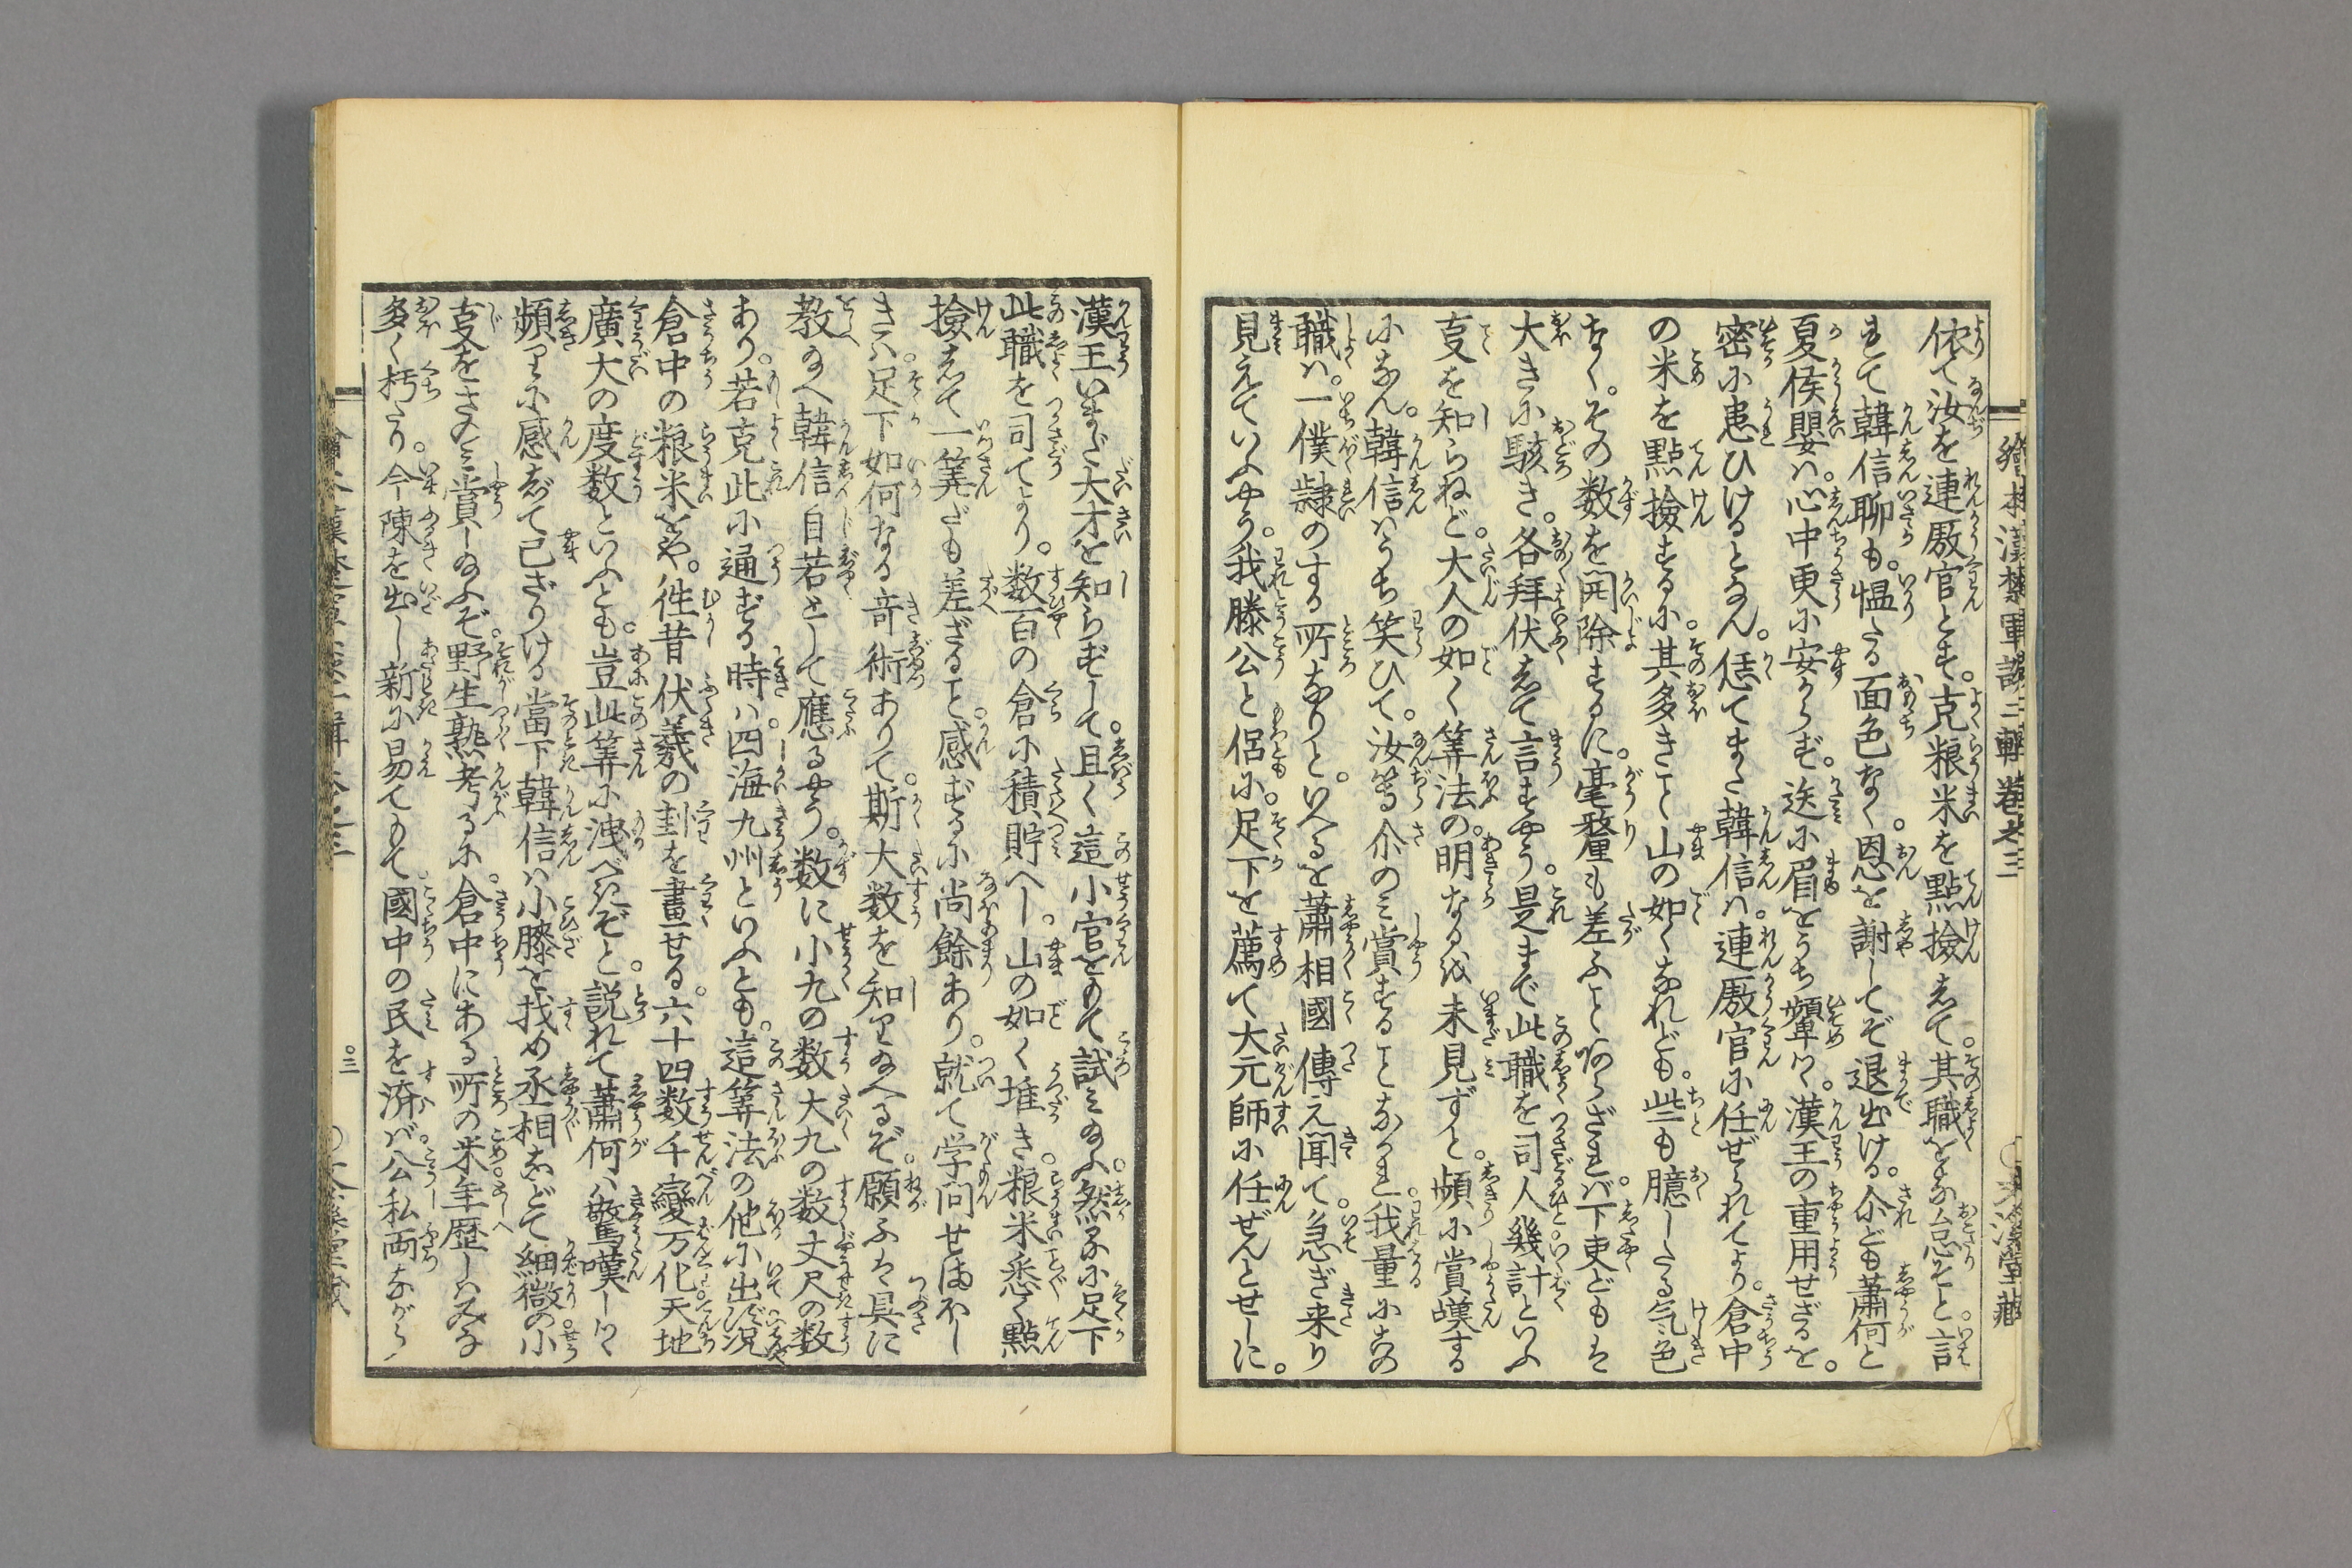 繪本漢楚軍談二輯卷之三
依て汝を連厫官とす。克粮米を點撿して。其職をな怠そと。言
れて韓信聊も。慍たる面色なく。恩を謝してぞ退出ける。尒ども蕭何と
夏侯嬰ハ。心中更に安からず。迭に眉をうち顰つゝ。漢王の重用せざるを。
密に患ひけるとなん。恁てまた韓信ハ。連厫官に任ぜられてより。倉中
の米を點撿するに。其多きこと山の如くなれども。些も臆したる気色
なく。その数を開除するに。毫釐も差ふことあらざれバ。下吏どもは
大きに駭き。各拜伏して言すやう。是まで此職を司人幾計といふ
叓を知らねど。大人の如く筭法の。明なるは未見ずと。頻に賞嘆する
になん。韓信ハうち笑ひて。汝等尒のミ賞することなかれ。我量にこの
職ハ。一僕隷のする所なりと。いへるを蕭相國傳え聞て。急ぎ来り
見えていふやう。我滕公と侶に。足下を薦て大元師に任ぜんとせしに。
漢王いまだ大才を知らずして。且く這小官をもて試ミ給ふ。然るに足下
此職を司てより。数百の倉に積貯へし。山の如く堆き粮米悉く點
撿して一筭だも差ざること。感ずるに尚餘あり。就て学問せまほし
きハ。足下如何なる竒術ありて。斯大数を知り給へるぞ。願ふは具に
教給へ韓信自若として應るやう。数に小九の数大九の数丈尺の数
あり。若克此に通ずる時ハ。四海九州といふとも。這筭法の他に出ず况
倉中の粮米をや。徃昔伏羲の卦を畫せる。六十四数千變万化天地
廣大の度数といふとも。豈此筭に洩べきぞと。説れて蕭何ハ驚嘆しつゝ
頻りに感じて已ざりける當下韓信ハ小膝を找め丞相などて細微の小
叓をさのミ賞し給ふぞ。野生熟考るに。倉中にある所の米年歴しハみな
多く朽たり。今陳を出し新に易てもて。國中の民を済バ。公私両ながら